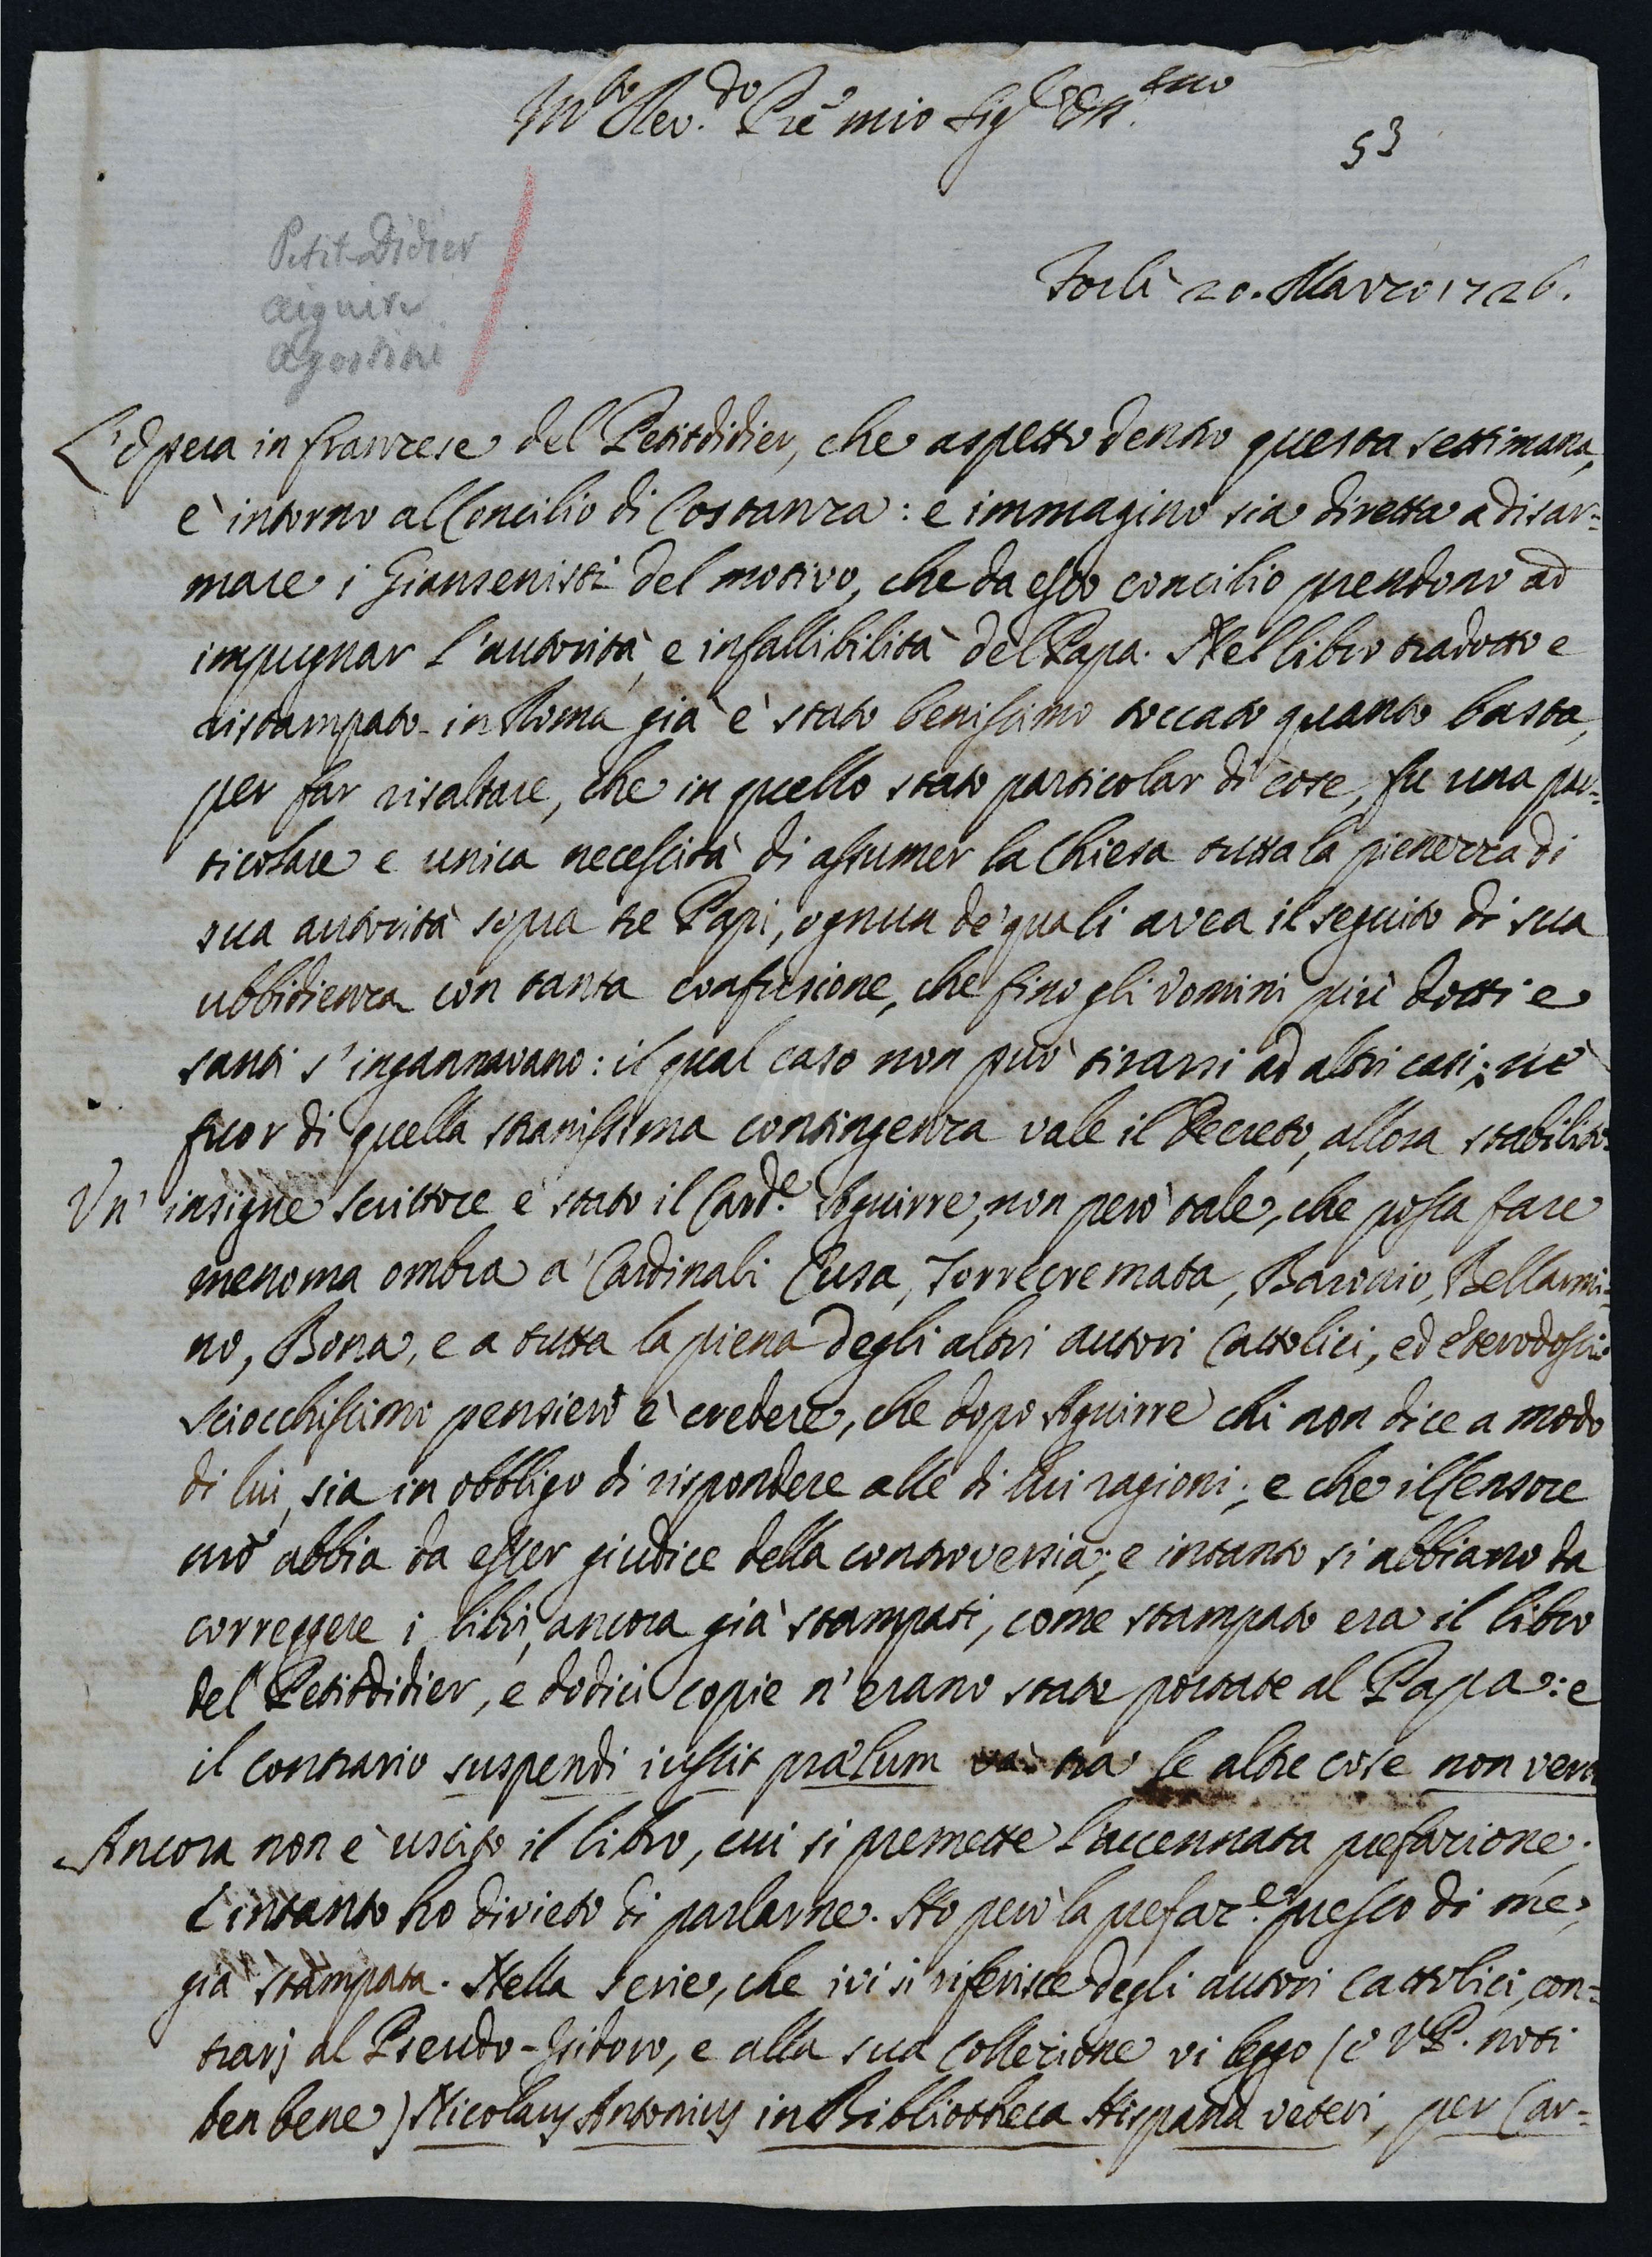 M.to Rev.do Prê mio Sig.r Oss.mo
53
Petit-Didier
Aiguirre
Agostini
Forlì 20. Marzo 1726.
L'Opera in franzese del Petitdidier, che aspetto dentro questa settimana,
è intorno al Concilio di Costanza: e immagino sia diretta a disar=
mare i Giansenisti del motivo, che da esso concilio prendono ad
impugnar l'autorità, e infallibilità del Papa. Nel libro tradotto e
ristampato in Roma già è stato benissimo toccato quanto basta,
per far risaltare, che in quello stato particolar di cose, fu una par=
ticolare e unica necessità di assumer la Chiesa tutta la pienezza di
sua autorità sopra tre Papi, ognun de' quali avea il seguito di sua
ubbidienza con tanta confusione, che fino gli uomini più dotti e
santi s'ingannavano: il qual caso non può tirarsi ad altri casi; nè
fuor di quella stranissima contingenza vale il Decreto, allora stabilito.
Un' insigne scrittore è stato il Card.e Aguirre, non però tale, che possa fare
menoma ombra a' Cardinali Cusa, Torrecremata, Baronio, Bellarmi=
no, Bona, e a tutta la piena degli altri autori Cattolici, ed Eterodossi:
sciocchissimo pensiero è credere, che dopo Aguirre chi non dice a modo
di lui, sia in obbligo di rispondere alle di lui ragioni; e che il Censore
mò abbia da esser giudice della controversia; e intanto si abbiano da
correggere i libri, ancora già stampati, come stampato era il libro
del Petitdidier, e dodici copie n'erano state portate al Papa: e
il contrario suspendi iussit prælum và tra le altre cose non vere
Ancora non è uscito il libro, cui si premette l'accennata prefazione.
E intanto ho divieto di parlarne. Ho però la prefaz.e presso di me,
già stampata. Nella serie, che ivi si riferisce degli autori Cattolici, con=
trarj al Pseudo-Isidoro, e alla sua Collezione vi leggo (e V.P. noti
ben bene) Nicolaus Antonius in Bibliotheca Hispana veteri, per Car=